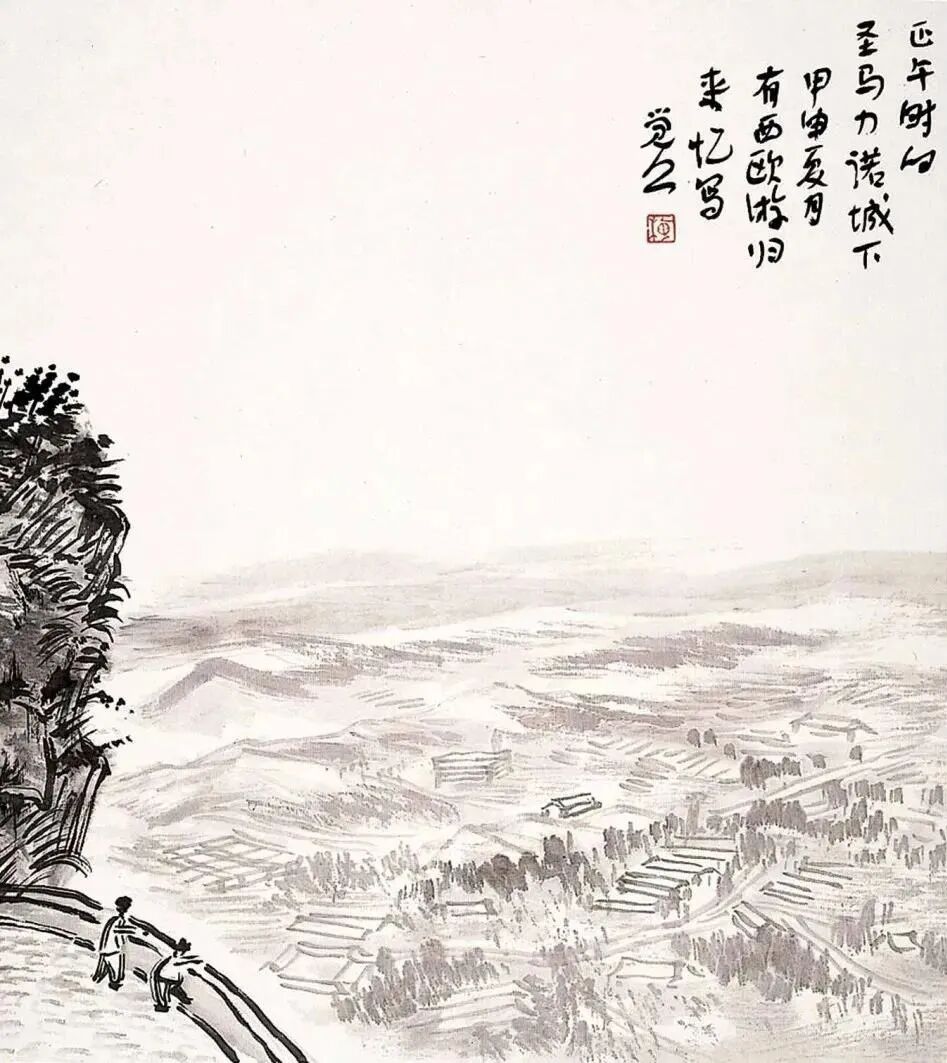 正午时的
圣马力诺城下
甲申夏月
有西欧游归
来忆写
觉公